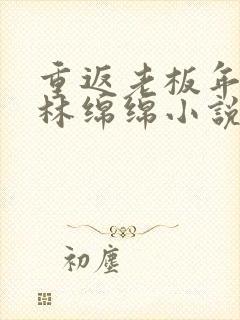 重返老板年
林绵绵小说
初尘